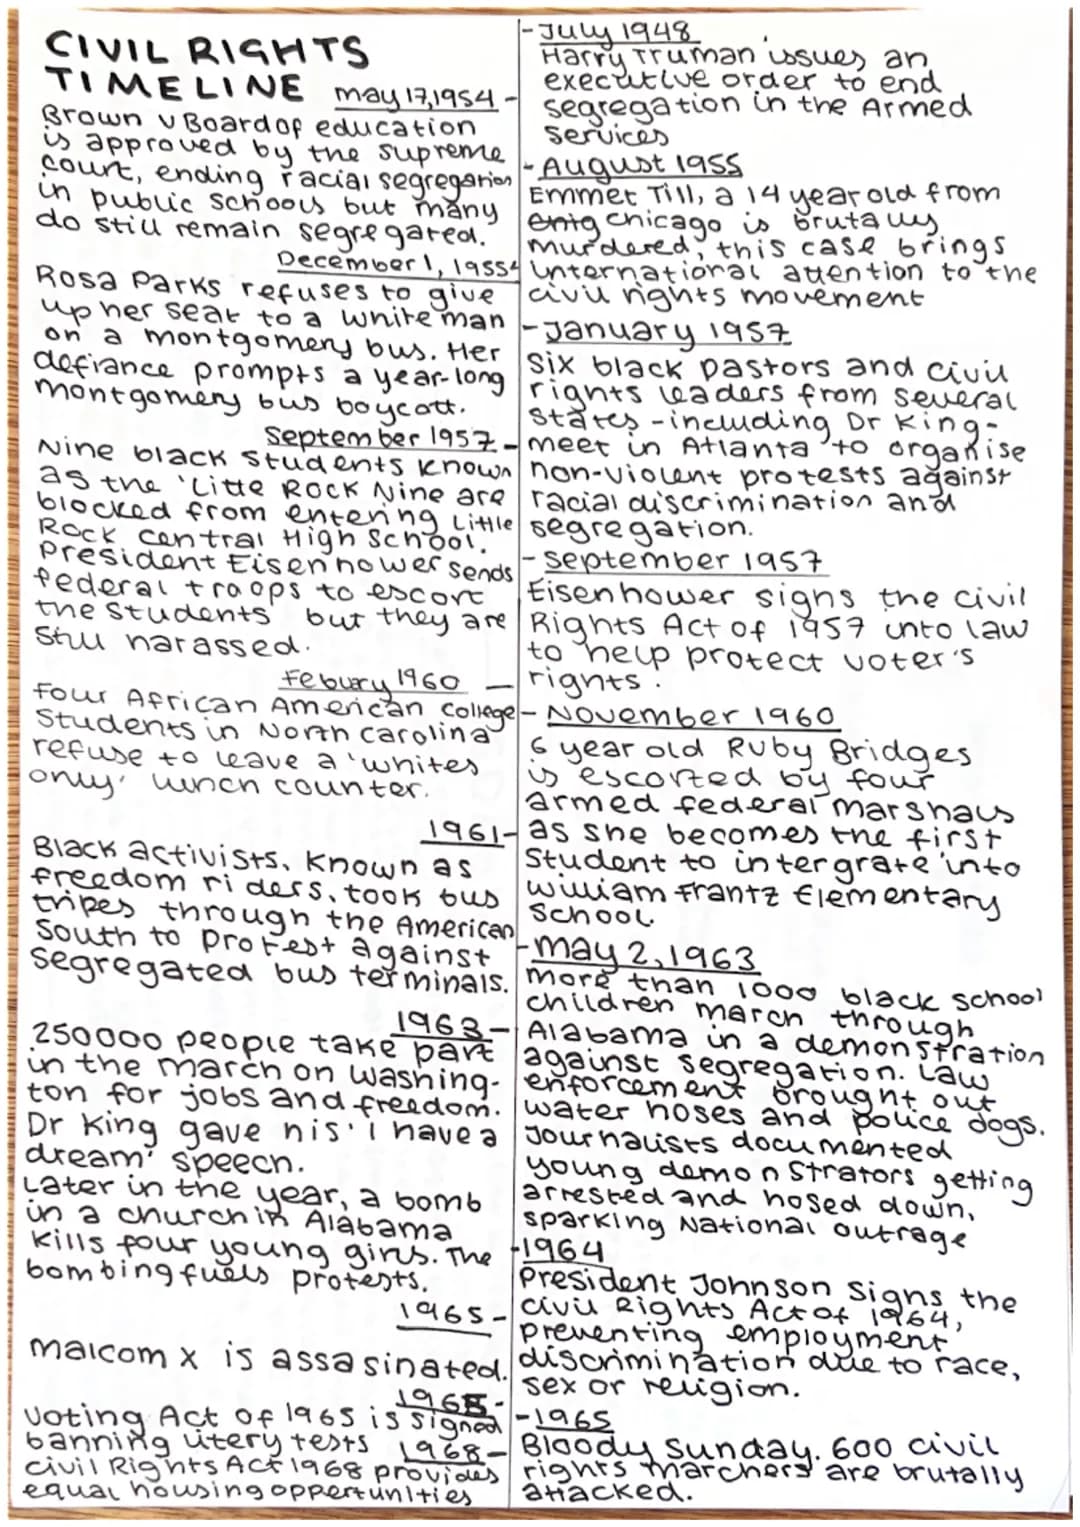 CIVIL RIGHTS
TIMELINE
may 17, 1954 -
Brown v Board of education
is approved by the supreme
court, ending racial segregation
in public schools but many
do still remain segregated.
December 1, 1955
Rosa Parks refuses to give
up her seat to a white man
on a montgomery bus. Her
defiance prompts a year-long
montgomery bus boycott.
September 1957 -
Nine black students known
as the 'Little Rock Nine are
blocked from entering Little
Rock central High School.
President Eisenhower sends
federal troops to escort
the students but they are
still harassed.
Febury 1960 -
Four African American college
students in North carolina
refuse to leave a 'whites
only' lunch counter.
1961 -
Black activists, known as
freedom riders, took bus
tripes through the American
South to protest against
segregated bus terminals.
1963 -
250000 people take part
in the march on washing-
ton for jobs and freedom.
Dr King gave his 'I have a
dream' speech.
Later in the year, a bomb
in a church in Alabama
kills four young girls. The
bombing fuels protests.
1965 -
Malcom x is assasinated.
1965 -
Voting Act of 1965 is signed
banning litery tests
1968 -
Civil Rights Act 1968 provides
equal housing oppertunities
- July 1948
Harry Truman issues an
executive order to end
segregation in the Armed
services
- August 1955
Emmet Till, a 14 year old from
chicago is brutally
murdered, this case brings
international attention to the
civil rights movement
- January 1957
Six black pastors and civil
rights leaders from several
states - including Dr King -
meet in Atlanta to organise
non-violent protests against
racial discrimination and
segregation.
- September 1957
Eisenhower signs the civil
Rights Act of 1957 into law
to help protect voter's
rights.
- November 1960
6 year old Ruby Bridges
is escorted by four
armed federal marshals
as she becomes the first
student to intergrate into
william Frantz Elementary
school.
- may 2, 1963
more than 1000 black school
children march through
Alabama in a demonstration
against segregation. Law
enforcement brought out
water hoses and police dogs.
Journalists documented
young demonstrators getting
arrested and hosed down,
sparking National outrage
- 1964
President Johnson signs the
civil Rights Act of 1964,
preventing employment
discrimination due to race,
sex or religion.
- 1965
Bloody Sunday. 600 civil
rights marchers are brutally
attacked.